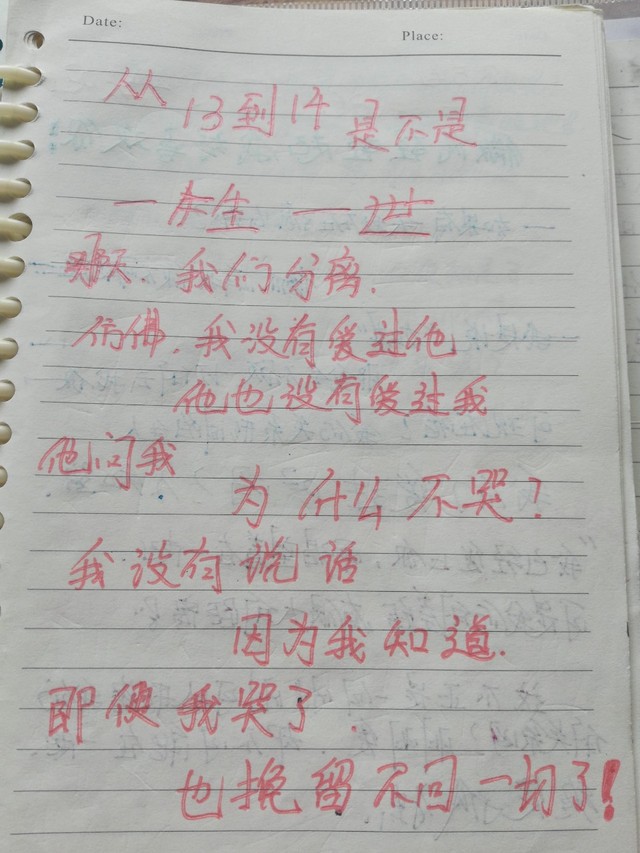 Date:
Place:
从13到14是不是
一生 一世
那天、我们分离.
仿佛,我没有爱过他
他也没有爱过我
他问我
为什么不哭?
我没有说话
因为我知道.
即便我哭了
也挽留不回一切了!